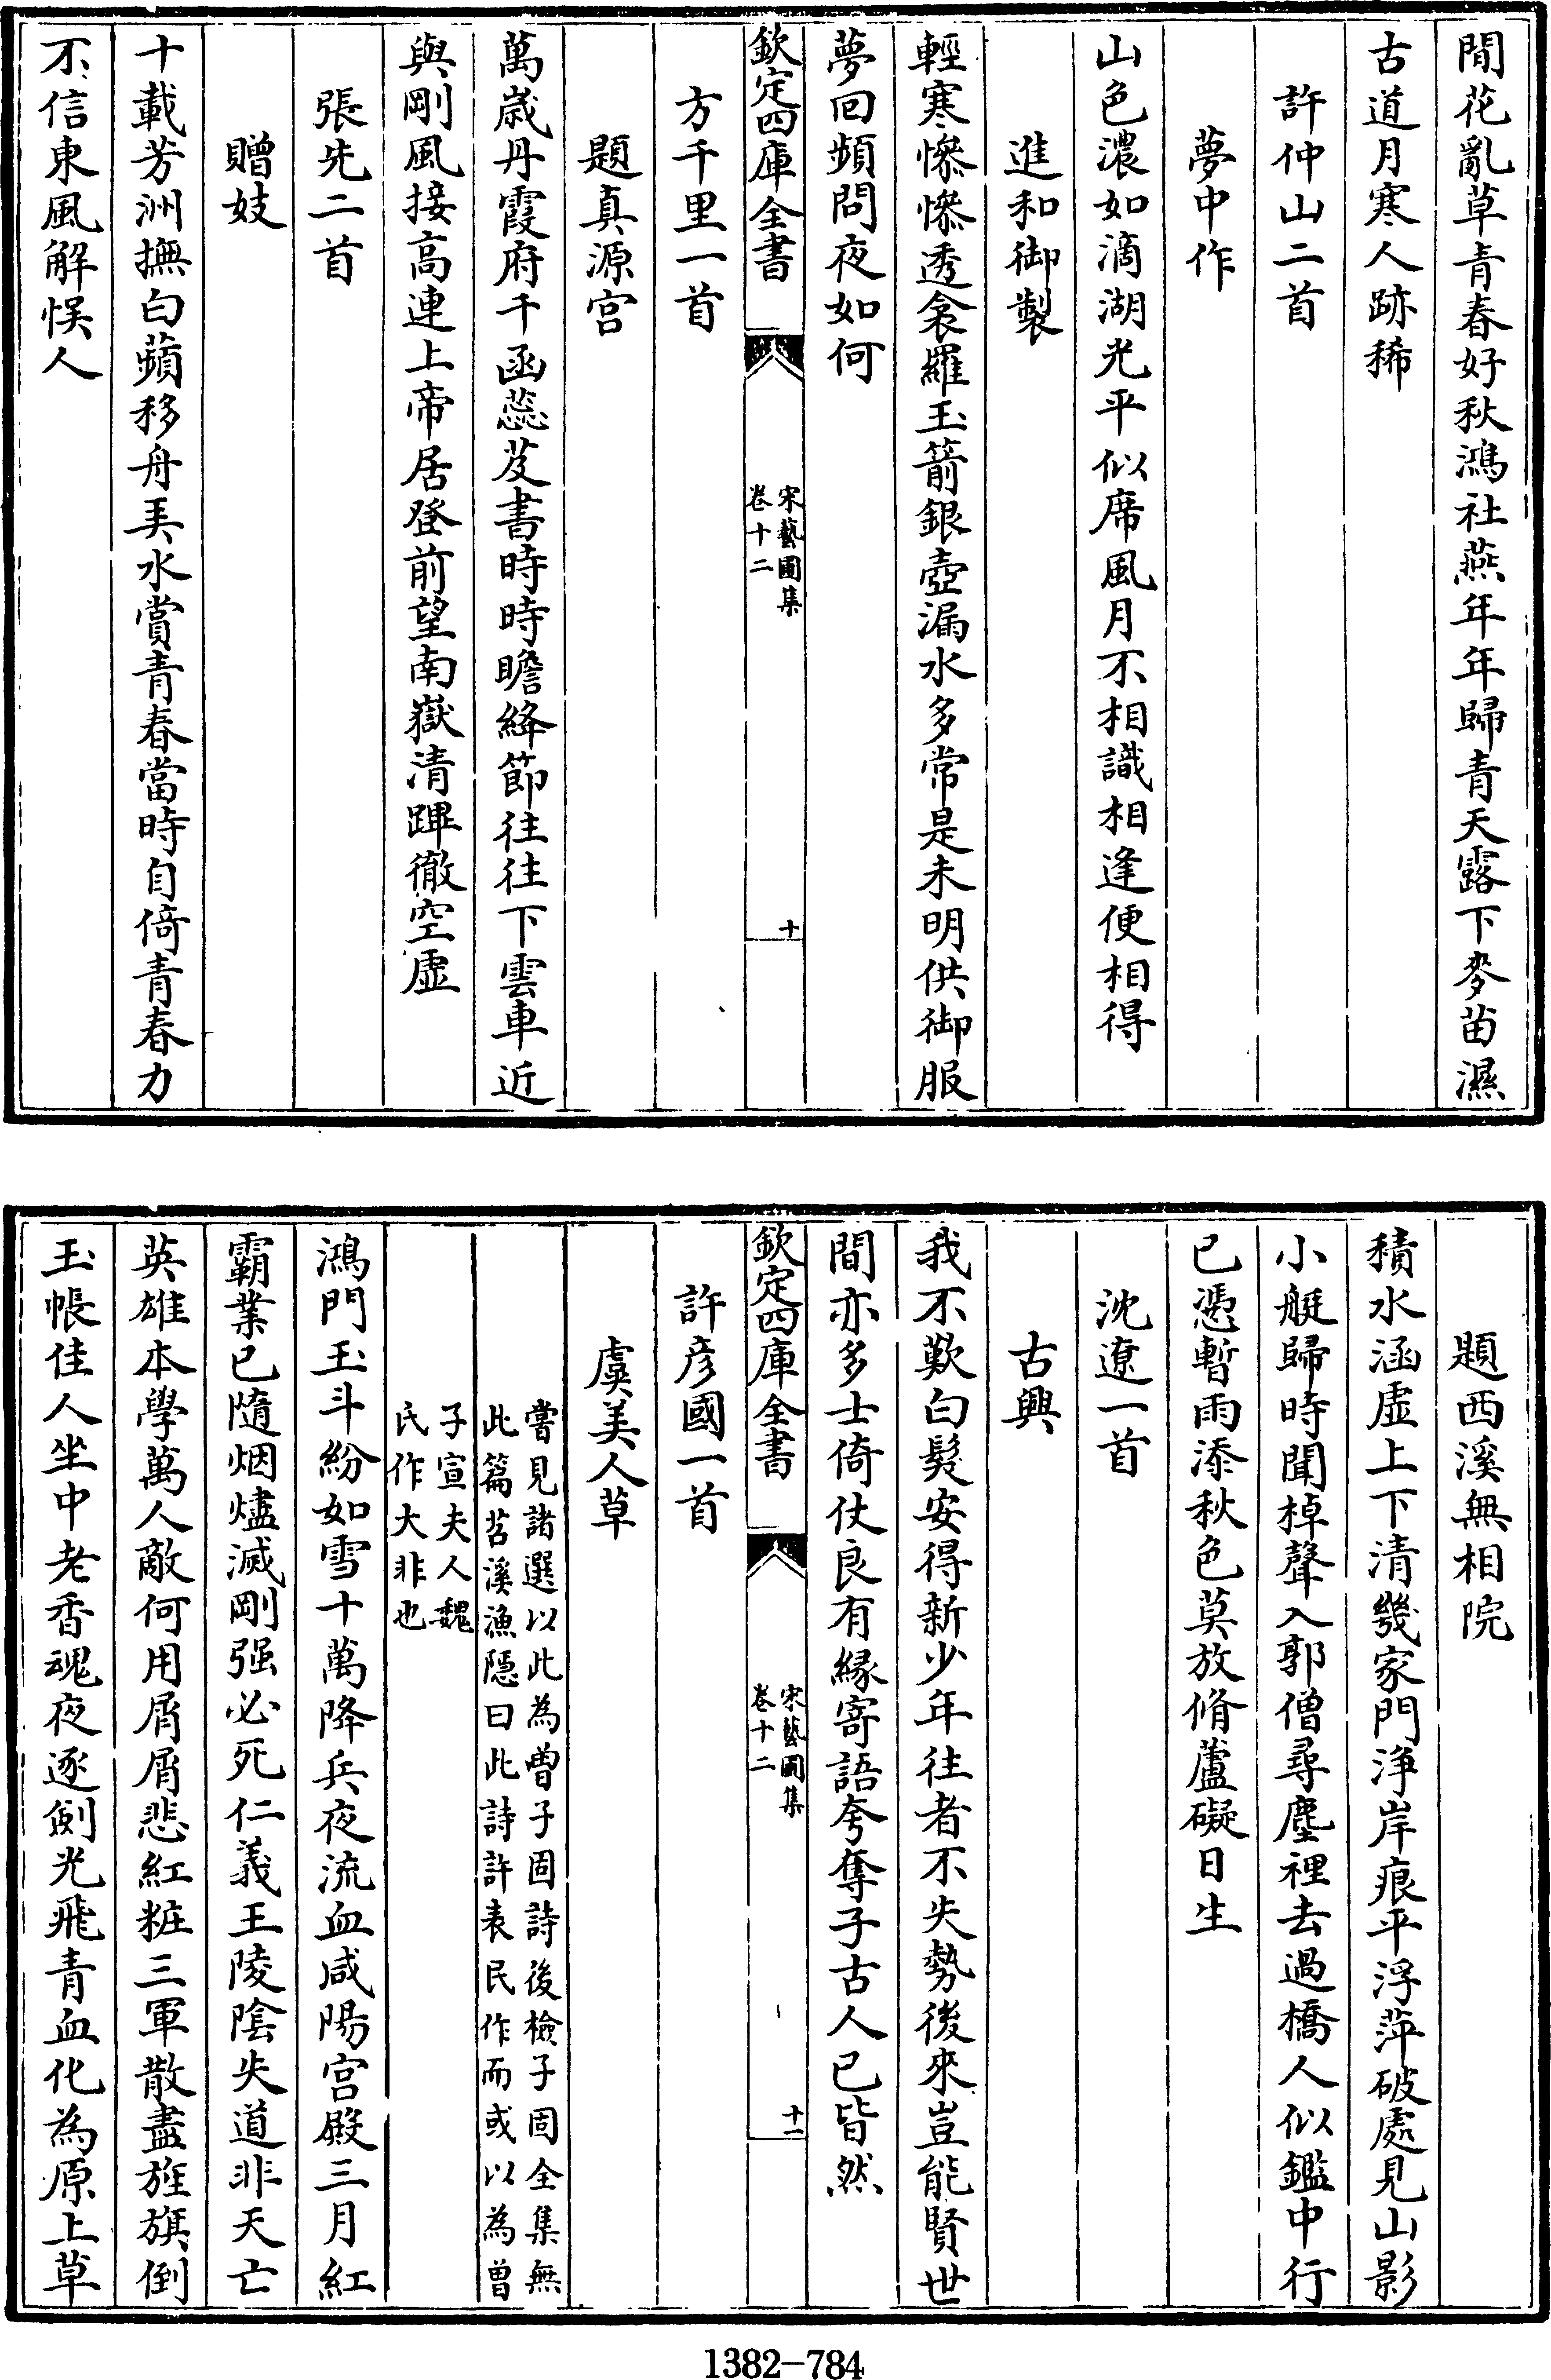 閒花亂草青春好秋鴻社燕年年歸青天露下麥苗濕
古道月寒人跡稀
許仲山二首
夢中作
山色濃如滴湖光平似席風月不相識相逢便相得
進和御製
輕寒慘慘透衾羅玉箭銀壺漏水多常是未明供御服
夢回頻問夜如何
欽定四庫全書
宋藝圃集
卷十二
十
方千里一首
題真源宮
萬歲丹霞府千函蕊芨書時時瞻絳節往往下雲車近
與剛風接高連上帝居登前望南嶽清蹕徹空虛
張先二首
贈妓
十載芳洲撫白蘋移舟美水賞青春當時自倚青春力
不信東風解悞人
題西溪無相院
積水涵虛上下清幾家門淨岸痕平浮萍破處見山影
小艇歸時聞棹聲入郭僧尋塵裡去過橋人似鑑中行
已憑暫雨添秋色莫放脩蘆礙日生
沈遼一首
古興
我不歎白髮安得新少年往者不失勢後來豈能賢世
間亦多士倚仗良有緣寄語夸奪子古人已皆然
欽定四庫全書
宋藝圃集
卷十二
十一
許彦國一首
虞美人草
嘗見諸選以此為曾子固詩後檢子固全集無
此篇苕溪漁隱曰此詩許表民作而或以為曾
子宣夫人魏
氏作大非也
鴻門玉斗紛如雪十萬降兵夜流血咸陽宮殿三月紅
霸業已隨烟燼滅剛强必死仁義王陵陰失道非天亡
英雄本學萬人敵何用屑屑悲紅粧三軍散盡旌旗倒
玉帳佳人坐中老香魂夜逐劍光飛青血化為原上草
1382-784